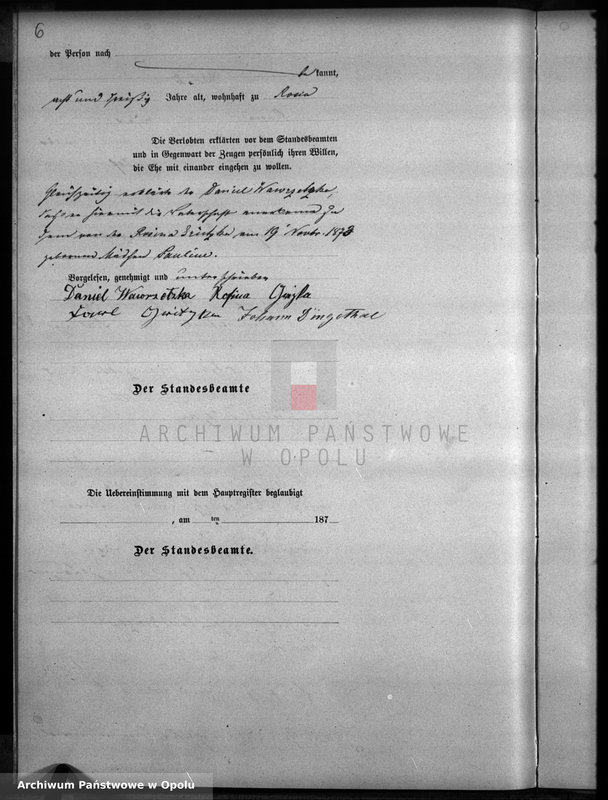 6
der Person nach
be kannt,
acht und dreißig Jahre alt, wohnhaft zu
Die Verlobten erklärten vor dem Standesbeamten
und in Gegenwart der Zeugen persönlich ihren Willen,
die Ehe mit einander eingehen zu wollen.
Gleichzeitig erklärte der Daniel Wawrzetzka,
daß er hiermit die Vaterschaft anerkenne zu
dem von der Rosina am 19 Novbr. 1873
geborenen Mädchen Pauline.
Vorgelesen, genehmigt und unterschrieben
Daniel Wawrzetzka Rosina
Johann Dingethal
Der Standesbeamte
ARCHIWUM PAŃSTWOWE
W OPOLU
Die Uebereinstimmung mit dem Hauptregister beglaubigt
, am ten 187
Der Standesbeamte.
Archiwum Państwowe w Opolu